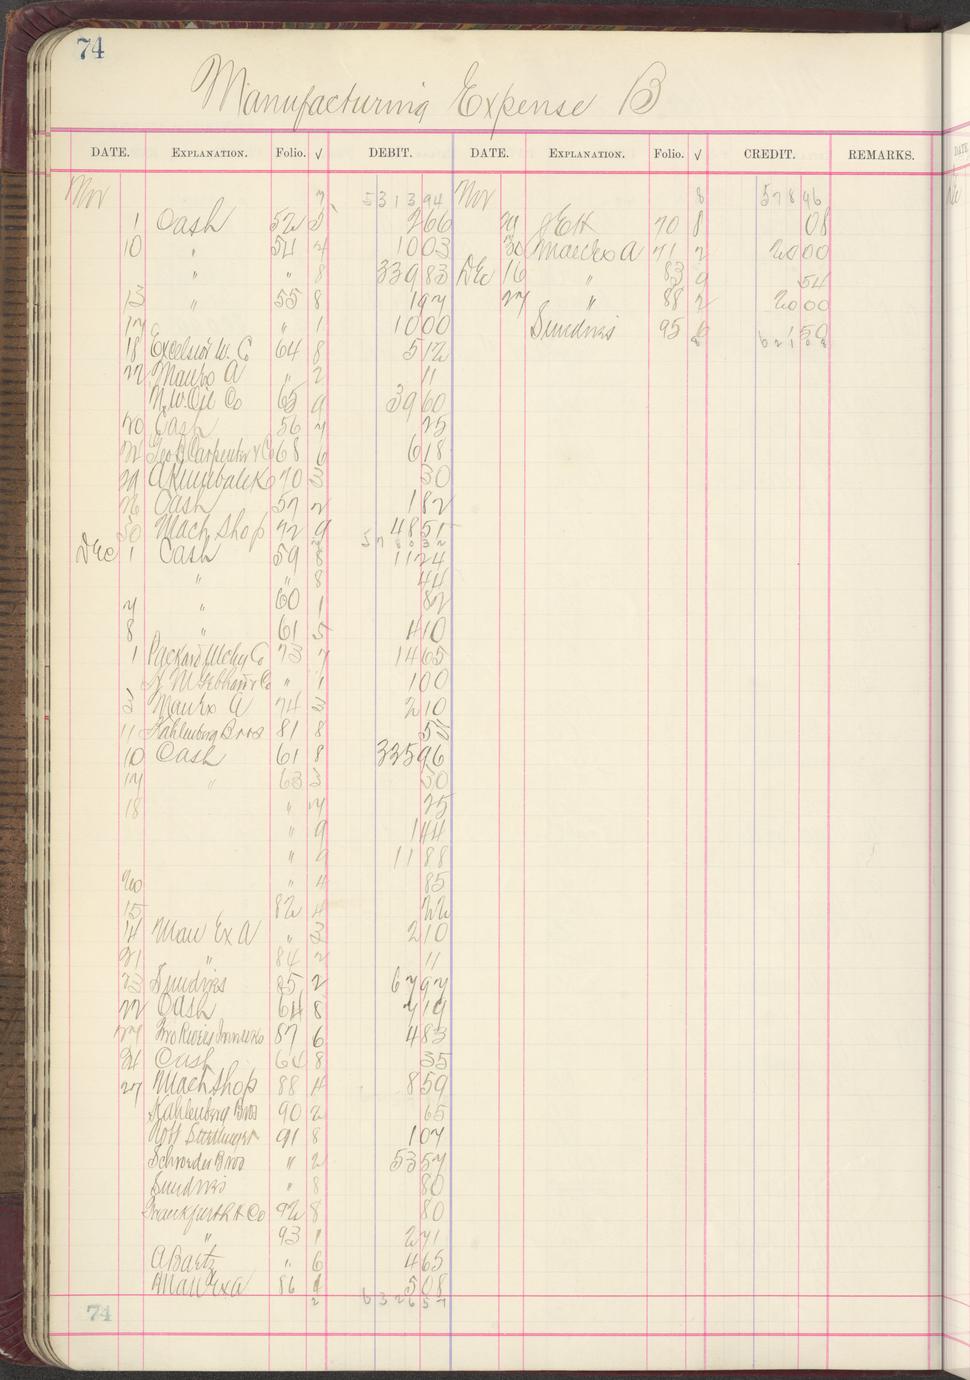 74
Manufacturing Expense B
DATE. EXPLANATION. Folio. √ DEBIT. DATE. EXPLANATION. Folio. √ CREDIT. REMARKS.
Nov 7 5313 94 Nov 8 578 96
1 Cash 52 5 2 66 29 70 8 08
10 " 54 4 10 03 30 Man Ex A 71 2 20 00
" " 8 339 83 Dec 16 " 83 9 54
13 " 55 8 1 97 27 " 88 2 20 00
17 " 1 10 00 Sundries 95 6 1 50
18 Excelsior W. Co 64 8 5 12 8 621 58
22 Man Ex A " 2 11
N.W. Oil Co 65 9 39 60
20 Cash 56 7 25
22 Geo B Carpenter & Co 68 6 6 18
29 A Kimball & Co 70 3 30
26 Cash 57 2 1 82
30 Mach Shop 72 9 48 51
5780 32
Dec 1 Cash 59 8 11 24
" " 8 44
7 " 60 1 82
8 " 61 5 4 10
1 Packard Mchy Co 73 7 14 65
" 1 1 00
3 Man Ex A 74 3 2 10
11 Kahlenberg Bros 81 8 55
10 Cash 61 8 335 96
17 " 63 3 30
18 " 7 25
" 9 1 44
" 9 11 88
20 " 4 85
15 82 4 22
14 Man Ex A " 3 2 10
21 " 84 2 11
23 Sundries 85 2 67 97
22 Cash 64 8 7 19
27 Two Rivers 87 6 4 83
24 Cash 64 8 35
27 Mach Shop 88 4 8 59
Kahlenberg Bros 90 2 65
91 8 1 07
Schroeder Bros " 2 53 57
Sundries " 8 80
Frankfurth H Co 92 8 80
" 93 1 2 71
A Baetz " 6 4 65
Man Ex A 86 1 5 08
2 6326 57
74